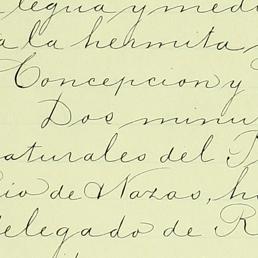 legua y medi
a la hermita
Concepcion y
Dos minu
naturales del P
Rio de Nazas, h
delegado de R